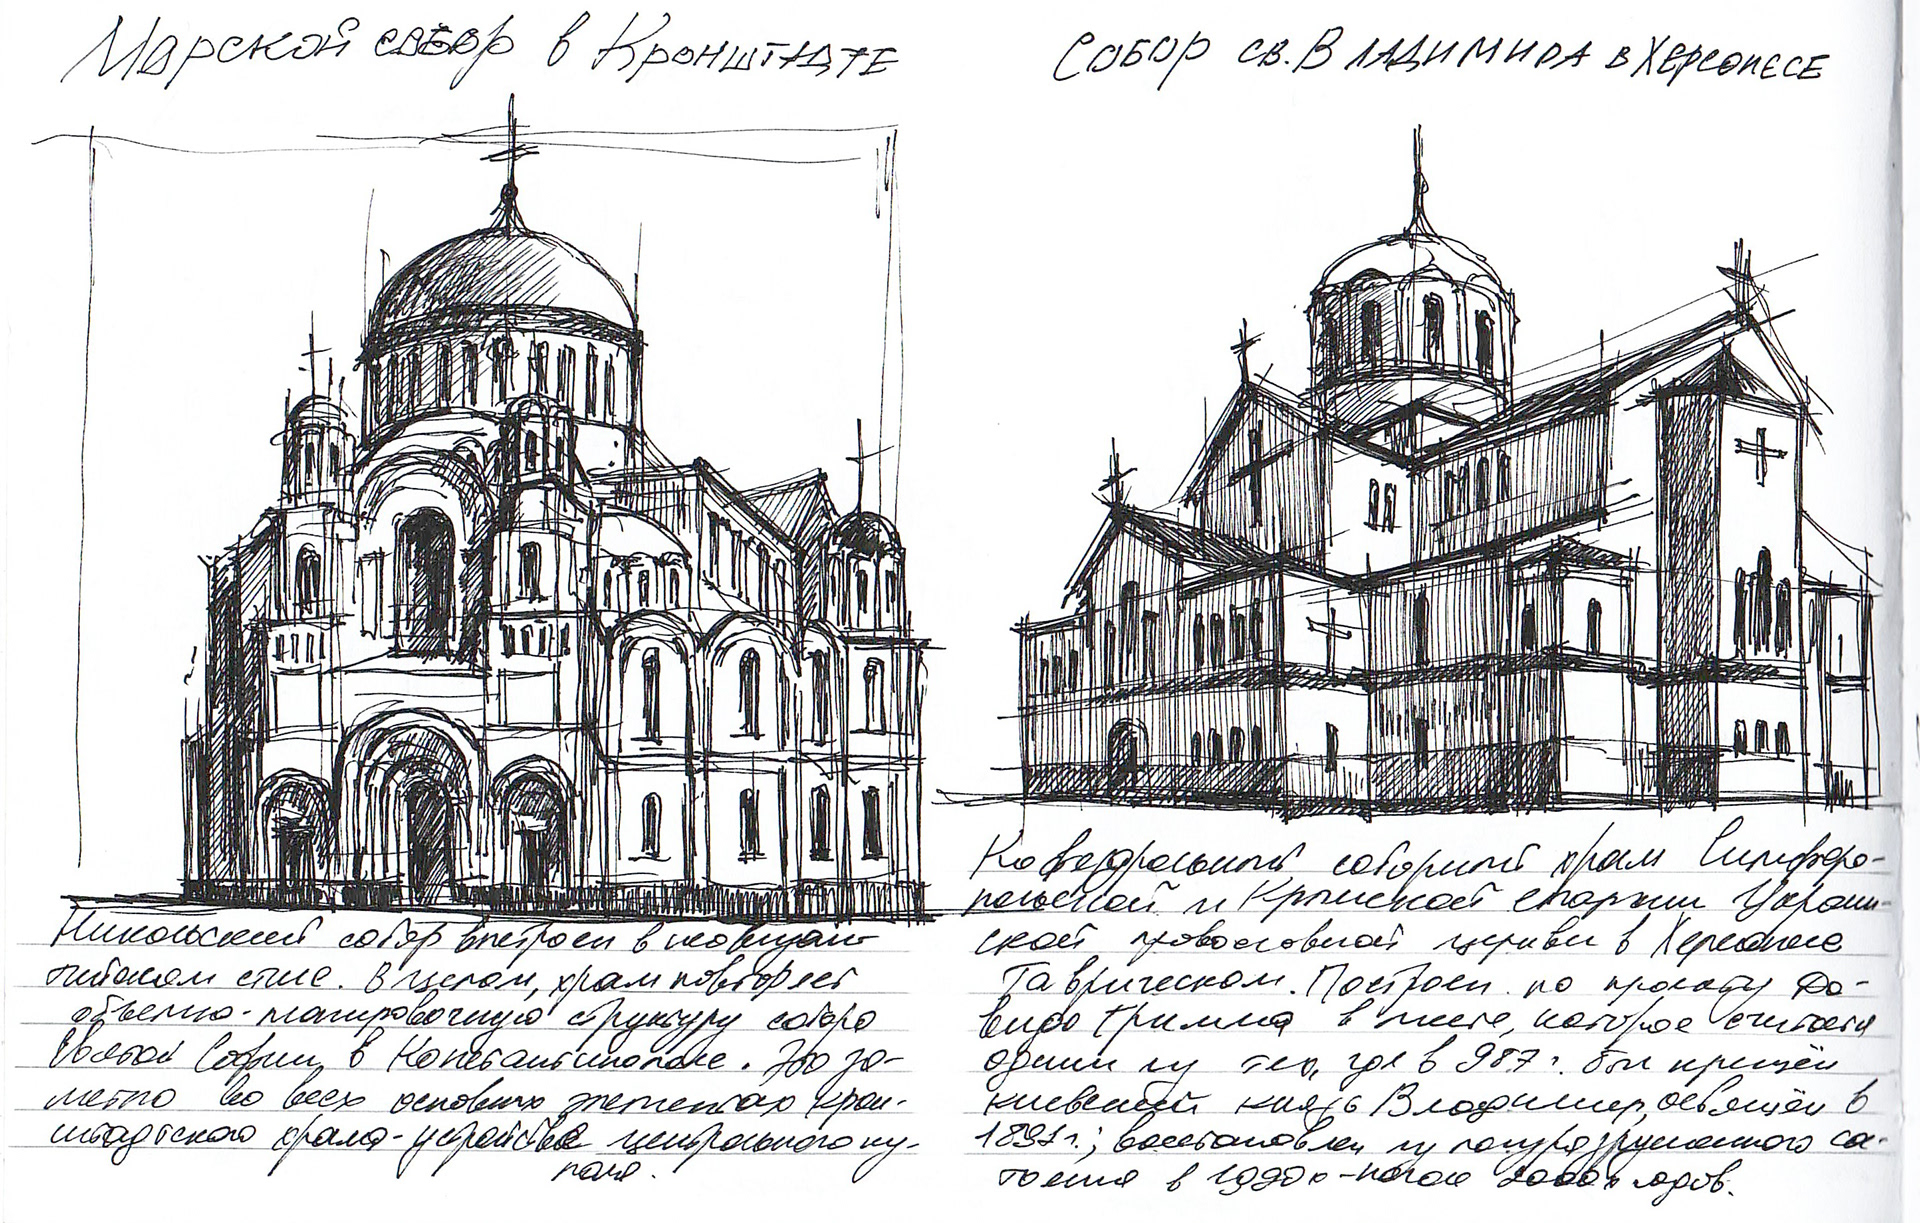 Морской собор в Кронштадте
Никольский собор выстроен в неовизан-
тийском стиле. В целом, храм повторяет
объемно-планировочную структуру собора
Святой Софии в Константинополе. Это за-
метно во всех основных элементах Крон-
штадтского храма - устройства центрального ку-
пола.
Собор св. Владимира в Херсонесе
Кафедральный соборный храм Симферо-
польской и Крымской епархии Украин-
ской православной церкви в Херсонесе
Таврическом. Построен по проекту Да-
вида Гримма в месте, которое считают
одним из тех, где в 987 г. был крещён
киевский князь Владимир, освящён в
1891 г.; восстановлен из полуразрушенного со-
тояния в 1990х-начале 2000х годов.